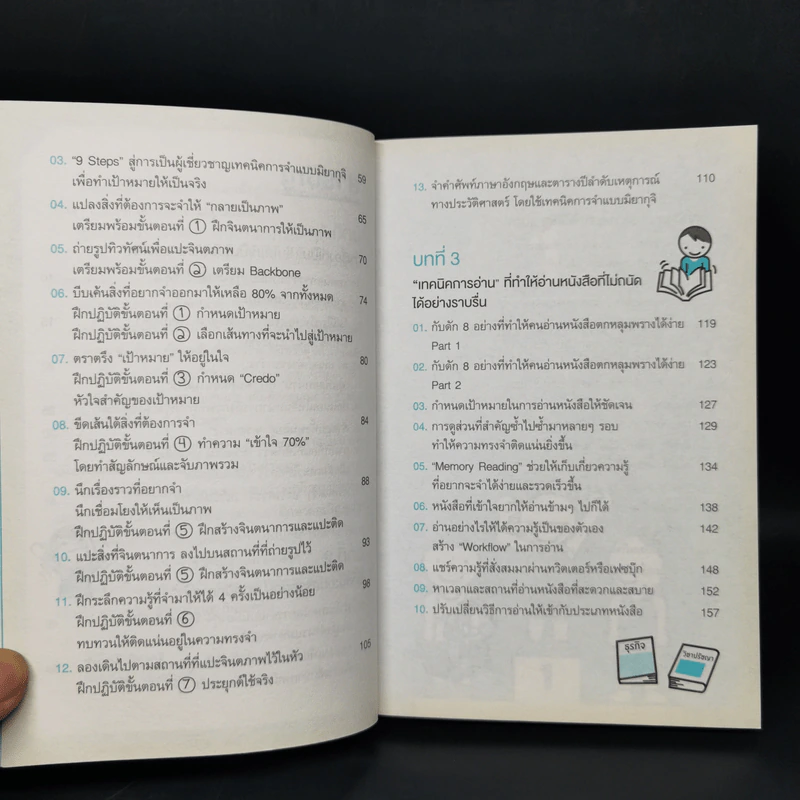 03. "9 Steps" สู่การเป็นผู้เชี่ยวชาญเทคนิคการจำแบบมิยากุจิ 59
เพื่อทำเป้าหมายให้เป็นจริง
04. แปลงสิ่งที่ต้องการจะจำให้ "กลายเป็นภาพ" 65
เตรียมพร้อมขั้นตอนที่ ① ฝึกจินตนาการให้เป็นภาพ
05. ถ่ายรูปทิวทัศน์เพื่อแปะจินตภาพ 70
เตรียมพร้อมขั้นตอนที่ ② เตรียม Backbone
06. บีบเค้นสิ่งที่อยากจำออกมาให้เหลือ 80% จากทั้งหมด 74
ฝึกปฏิบัติขั้นตอนที่ ① กำหนดเป้าหมาย
ฝึกปฏิบัติขั้นตอนที่ ② เลือกเส้นทางที่จะนำไปสู่เป้าหมาย
07. ตราตรึง "เป้าหมาย" ให้อยู่ในใจ 80
ฝึกปฏิบัติขั้นตอนที่ ③ กำหนด "Credo"
หัวใจสำคัญของเป้าหมาย
08. ขีดเส้นใต้สิ่งที่ต้องการจำ 84
ฝึกปฏิบัติขั้นตอนที่ ④ ทำความ "เข้าใจ 70%"
โดยทำสัญลักษณ์และจับภาพรวม
09. นึกเรื่องราวที่อยากจำ 88
นึกเชื่อมโยงให้เห็นเป็นภาพ
ฝึกปฏิบัติขั้นตอนที่ ⑤ ฝึกสร้างจินตนาการและแปะติด
10. แปะสิ่งที่จินตนาการ ลงไปบนสถานที่ที่ถ่ายรูปไว้ 93
ฝึกปฏิบัติขั้นตอนที่ ⑤ ฝึกสร้างจินตนาการและแปะติด
11. ฝึกระลึกความรู้ที่จำมาให้ได้ 4 ครั้งเป็นอย่างน้อย 98
ฝึกปฏิบัติขั้นตอนที่ ⑥
ทบทวนให้ติดแน่นอยู่ในความทรงจำ
12. ลองเดินไปตามสถานที่ที่แปะจินตภาพไว้ในหัว 105
ฝึกปฏิบัติขั้นตอนที่ ⑦ ประยุกต์ใช้จริง
13. จำคำศัพท์ภาษาอังกฤษและตารางปีลำดับเหตุการณ์ 110
ทางประวัติศาสตร์ โดยใช้เทคนิคการจำแบบมิยากุจิ
บทที่ 3
"เทคนิคการอ่าน" ที่ทำให้อ่านหนังสือที่ไม่ถนัด
ได้อย่างราบรื่น
01. กับดัก 8 อย่างที่ทำให้คนอ่านหนังสือตกหลุมพรางได้ง่าย 119
Part 1
02. กับดัก 8 อย่างที่ทำให้คนอ่านหนังสือตกหลุมพรางได้ง่าย 123
Part 2
03. กำหนดเป้าหมายในการอ่านหนังสือให้ชัดเจน 127
04. การดูส่วนที่สำคัญซ้ำไปซ้ำมาหลายๆ รอบ 129
ทำให้ความทรงจำติดแน่นยิ่งขึ้น
05. "Memory Reading" ช่วยให้เก็บเกี่ยวความรู้ 134
ที่อยากจะจำได้ง่ายและรวดเร็วขึ้น
06. หนังสือที่เข้าใจยากให้อ่านข้ามๆ ไปก็ได้ 138
07. อ่านอย่างไรให้ได้ความรู้เป็นของตัวเอง 142
สร้าง "Workflow" ในการอ่าน
08. แชร์ความรู้ที่สั่งสมมาผ่านทวิตเตอร์หรือเฟซบุ๊ก 148
09. หาเวลาและสถานที่อ่านหนังสือที่สะดวกและสบาย 152
10. ปรับเปลี่ยนวิธีการอ่านให้เข้ากับประเภทหนังสือ 157
ธุรกิจ
วิชาปรัชญา